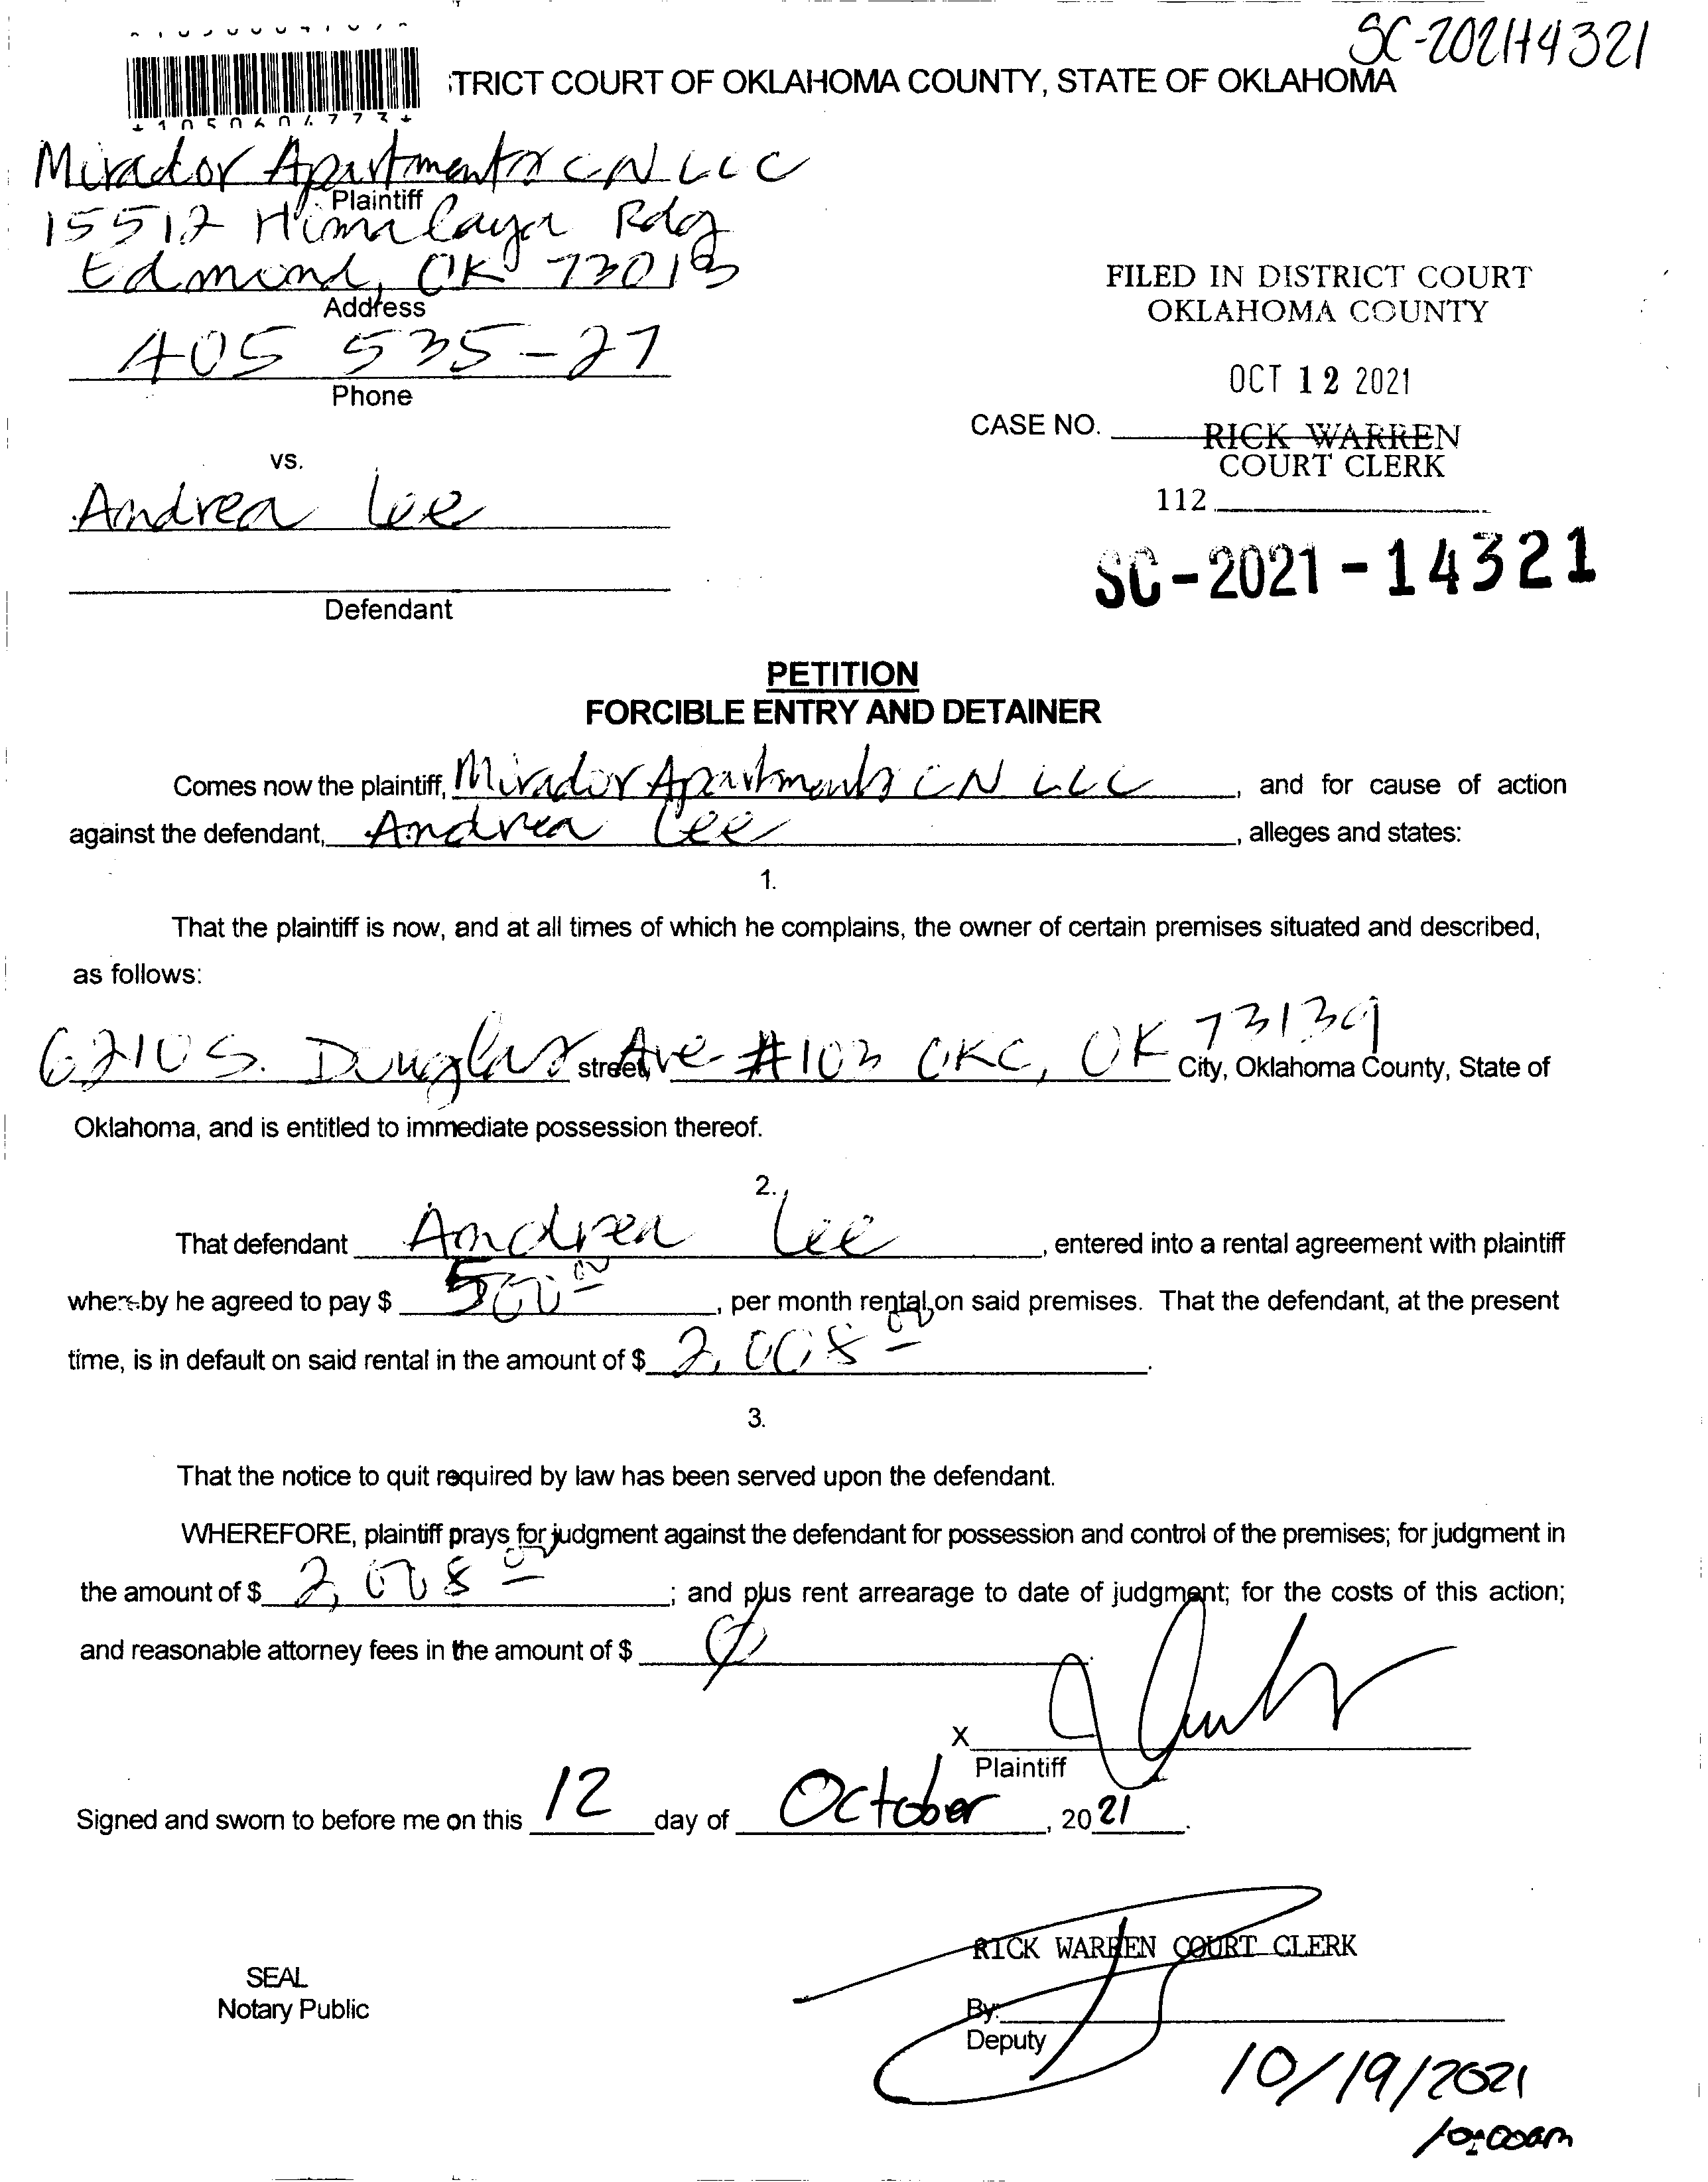 SC-2021-14321
TRICT COURT OF OKLAHOMA COUNTY, STATE OF OKLAHOMA
Mirador Apartments CN LLC
Plaintiff
15512 Himalaya Rdg
Edmond, OK 73013
Address
405 535-27
Phone
FILED IN DISTRICT COURT
OKLAHOMA COUNTY
OCT 12 2021
CASE NO. RICK WARREN
COURT CLERK
112
vs.
Andrea Lee
Defendant
SC-2021-14321
PETITION
FORCIBLE ENTRY AND DETAINER
Comes now the plaintiff, Mirador Apartments CN LLC, and for cause of action
against the defendant, Andrea Lee, alleges and states:
1.
That the plaintiff is now, and at all times of which he complains, the owner of certain premises situated and described,
as follows:
6210 S. Douglas street, Ave #103 OKC, OK 73139 City, Oklahoma County, State of
Oklahoma, and is entitled to immediate possession thereof.
2.
That defendant Andrea Lee, entered into a rental agreement with plaintiff
whereby he agreed to pay $ 500.00, per month rental on said premises. That the defendant, at the present
time, is in default on said rental in the amount of $ 2,008.00.
3.
That the notice to quit required by law has been served upon the defendant.
WHEREFORE, plaintiff prays for judgment against the defendant for possession and control of the premises; for judgment in
the amount of $ 2,008.00; and plus rent arrearage to date of judgment; for the costs of this action;
and reasonable attorney fees in the amount of $ 0.
X
Plaintiff
Signed and sworn to before me on this 12 day of October, 2021.
RICK WARREN COURT CLERK
SEAL
Notary Public
By:
Deputy
10/19/2021
10:00am